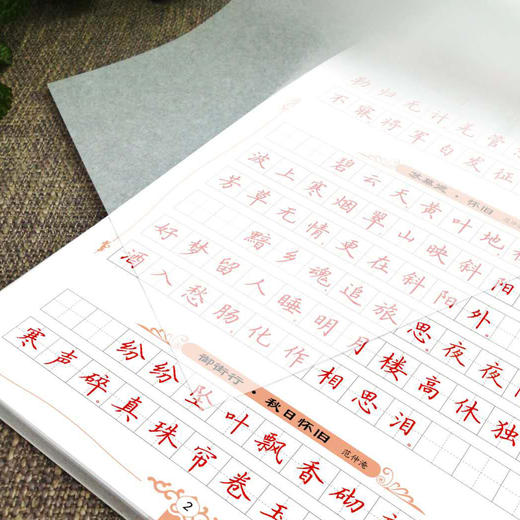 勒归无计羌管
不寐将军白发征
苏幕遮·怀旧
碧云天黄叶地
波上寒烟翠山映斜阳
芳草无情更在斜阳外。
黯乡魂追旅思夜夜
好梦留人睡明月楼高休独
酒入愁肠化作相思泪。
御街行·秋日怀旧 范仲淹
纷纷坠叶飘香砌
寒声碎真珠帘卷玉
2